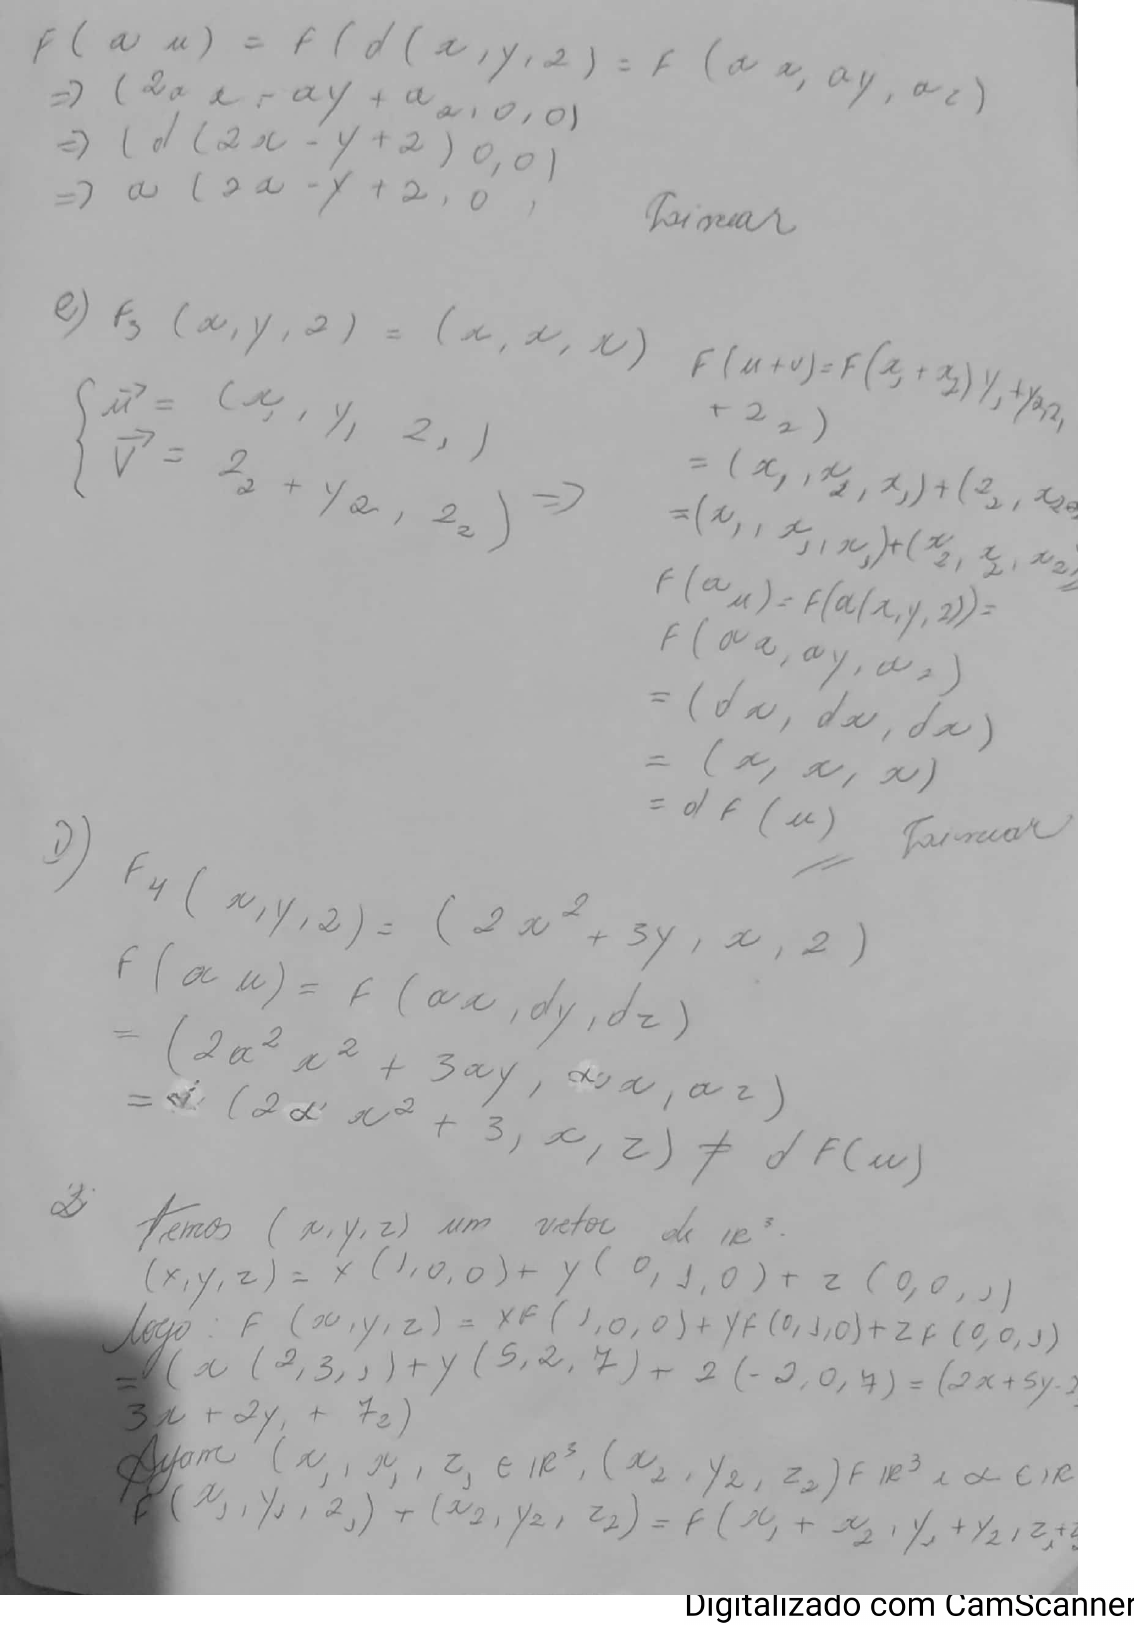 F(α u) = F(α(x,y,z) = F(αx, αy, αz)
=> (2αx - αy + αz, 0, 0)
=> (α(2x - y + z) 0, 0)
=> α(2x - y + z, 0,
Linear
c) F₃(x, y, z) = (x, x, x)
u⃗ = (x₁, y₁ z₁)
v⃗ = z₂ + y₂, z₂) =>
F(u+v) = F(x₁ + x₂) y₁ + y₂, z₁
+ z₂)
= (x₁, x₂, x₁) + (z₂, x₂
= (x₁, x₁, x₁) + (x₂, x₂, x₂)
F(αu) = F(α(x,y,z)) =
F(αx, αy, αz)
= (αx, αx, αx)
= (x, x, x)
= αF(u) Linear
D) F₄(x, y, z) = (2x² + 3y, x, z)
F(α u) = F(αx, αy, αz)
= (2α² x² + 3αy, αx, αz)
= α (2α x² + 3, x, z) ≠ αF(u)
2 Temos (x,y,z) um vetor de IR³.
(x,y,z) = x(1,0,0) + y(0,1,0) + z(0,0,1)
logo: F(x,y,z) = xF(1,0,0) + yF(0,1,0) + zF(0,0,1)
= (x(2,3,1) + y(5,2,7) + z(-2,0,7) = (2x+5y-2
3x + 2y, + 7z)
(x₁, x₁, z₁ ∈ IR³, (x₂, y₂, z₂) F IR³ e α ∈ IR
F(x₁, y₁, z₁) + (x₂, y₂, z₂) = F(x₁ + x₂, y₁ + y₂, z₁+z
Digitalizado com CamScanner